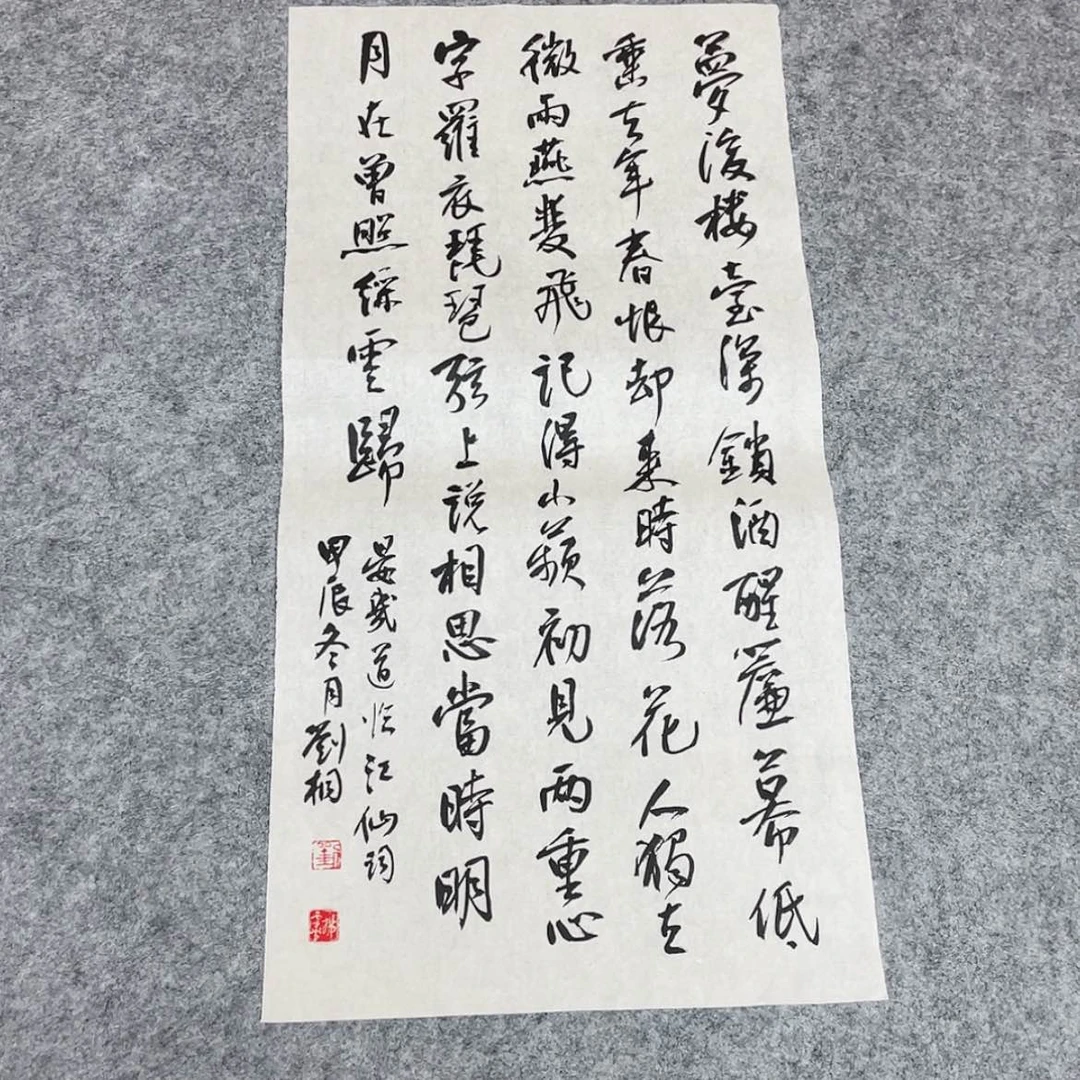 夢後楼臺深鎖酒醒簾幕低
垂去年春恨却来時落花人獨立
微雨燕雙飛記得小蘋初見兩重心
字羅衣琵琶弦上説相思當時明
月在曾照綵雲歸
晏幾道臨江仙詞
甲辰冬月劉相